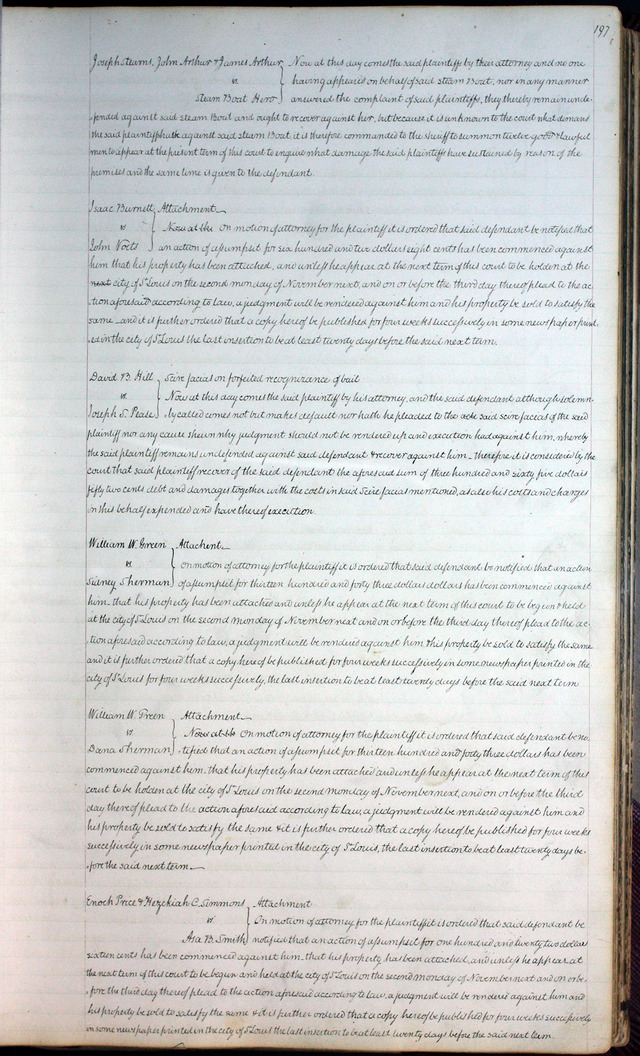 197
Joseph Stearns, John Arthur & James Arthur } Now at this day comes the said plaintiffs by their attorney and no one
vs } having appeared on behalf of said Steam Boat, nor in any manner
Steam Boat Hero } answered the complaint of said plaintiffs, they thereby remain unde-
-fended against said Steam Boat and ought to recover against her, but because it is unknown to the court what demand
the said plaintiffs hath against said Steam Boat it is therefore commanded to the sheriff to summon twelve good & lawful
men to appear at the present term of this court to enquire what damage the said plaintiffs have sustained by reason of the
premises and the same time is given to the defendant.
Isaac Burnett } Attachment
vs } Now at the On motion of attorney for the plaintiff it is ordered that said defendant be notified that
John } an action of assumpsit for six hundred and two dollars eight cents has been commenced against
him that his property has been attached, and unless he appear at the next term of this court to be holden at the
next city of St Louis on the second monday of November next, and on or before the third day thereof plead to the ac-
-tion aforesaid according to law, a judgment will be rendered against him and his property be sold to satisfy the
same and it is further ordered that a copy hereof be published for four weeks successively in some newspaper print-
-ed in the city of St Louis the last insertion to be at least twenty days before the said next term.
David B. Hill } Scire facias on forfeited recognizance of bail
vs } Now at this day comes the said plaintiff by his attorney, and the said defendant although solemn-
Joseph S. Pease } -ly called comes not but makes default nor hath he pleaded to the said scire facias of the said
plaintiff nor any cause shewn why judgment should not be rendered up and execution had against him, whereby
the said plaintiff remains undefended against said defendant & recover against him Therefore it is considered by the
court that said plaintiff recover of the said defendant the aforesaid sum of three hundred and sixty five dollars
fifty two cents debt and damages together with the costs in said Scire facias mentioned, as also his costs and charges
in this behalf expended and have thereof execution.
William W. Green } Attachent
vs } on motion of attorney for the plaintiff it is ordered that said defendant be notified that an action
Sidney Sherman } of assumpsit for thirteen hundred and forty three dollars dollars has been commenced against
him. that his property has been attached and unless he appear at the next term of this court to be begun & held
at the city of St Louis on the second monday of November next and on or before the third day thereof plead to the ac-
-tion aforesaid according to law, a judgment will be rendered against him & his property be sold to satisfy the same
and it is further ordered that a copy hereof be published for four weeks successively in some newspaper printed in the
city of St Louis for four weeks successively, the last insertion to be at least twenty days before the said next term
William W. Green } Attachment
vs } Now at th On motion of attorney for the plaintiff it is ordered that said defendant be no-
Dana Sherman } -tified that an action of assumpsit for thirteen hundred and forty three dollars has been
commenced against him. that his property has been attached and unless he appear at the next term of this
court to be holden at the city of St Louis on the second monday of November next, and on or before the third
day thereof plead to the action aforesaid according to law, a judgment will be rendered against him and
his property be sold to satisfy the same & it is further ordered that a copy hereof be published for four weeks
successively in some newspaper printed in the city of St Louis, the last insertion to be at least twenty days be-
-fore the said next term
Enoch Price & Hezekiah C. Simmons } Attachment
vs } On motion of attorney for the plaintiff it is ordered that said defendant be
Asa B. Smith } notified that an action of assumpsit for one hundred and twenty two dollars
sixteen cents has been commenced against him. that his property has been attached, and unless he appear at
the next term of this court to be begun and held at the city of St Louis on the second monday of November next and on or be-
-fore the third day thereof plead to the action aforesaid according to law, a judgment will be rendered against him and
his property be sold to satisfy the same & it is further ordered that a copy hereof be published for four weeks successively
in some newspaper printed in the city of St Louis the last insertion to be at least twenty days before the said next term.